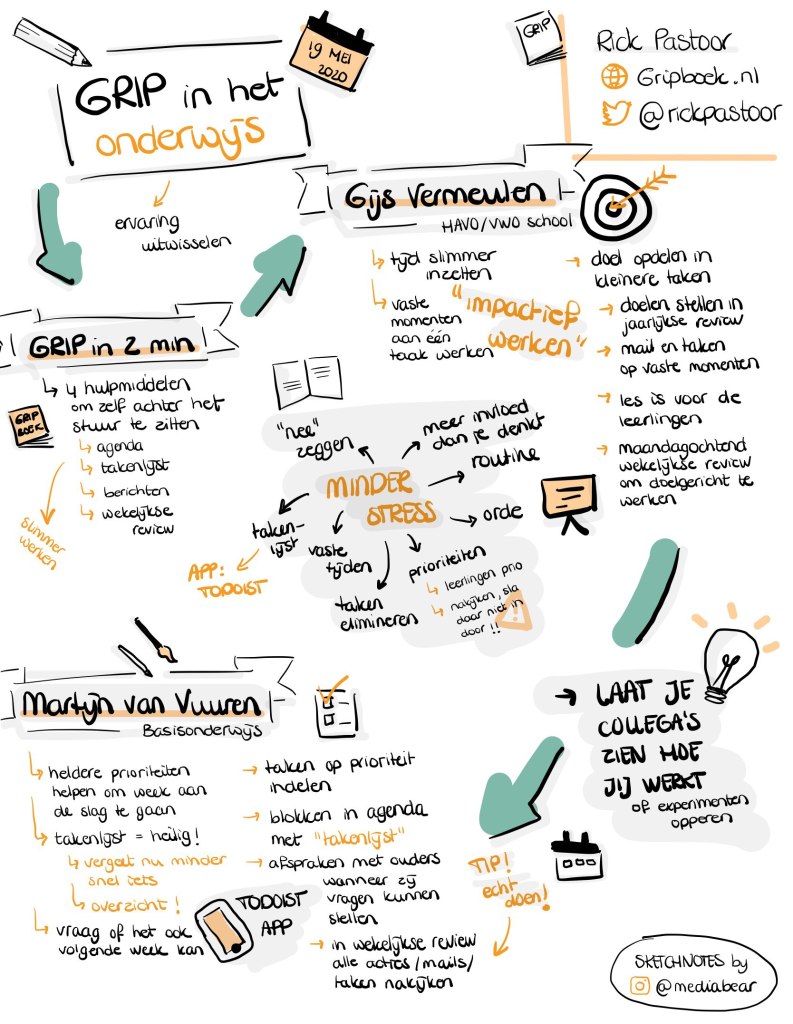 GRIP in het
onderwijs
19 MEI
2020
ervaring
uitwisselen
GRIP
Rick Pastoor
Gripboek.nl
@rickpastoor
GRIP in 2 min
4 hulpmiddelen
om zelf achter het
stuur te zitten
GRIP
BOEK
agenda
takenlijst
berichten
wekelijkse
review
slimmer
werken
Gijs Vermeulen
HAVO/VWO school
tijd slimmer
inzetten
vaste
momenten
aan één
taak werken
"impactief
werken"
doel opdelen in
kleinere taken
doelen stellen in
jaarlijkse review
mail en taken
op vaste momenten
les is voor de
leerlingen
maandagochtend
wekelijkse review
om doelgericht te
werken
MINDER
STRESS
"nee"
zeggen
meer invloed
dan je denkt
routine
orde
prioriteiten
leerlingen prio
nakijken, sla
daar niet in
door !!
taken
elimineren
vaste
tijden
taken-
lijst
APP:
TODOIST
LAAT JE
COLLEGA'S
ZIEN HOE
JIJ WERKT
of experimenten
opperen
Martijn van Vuuren
Basisonderwijs
heldere prioriteiten
helpen om week aan
de slag te gaan
takenlijst = heilig!
vergeet nu minder
snel iets
overzicht !
vraag of het ook
volgende week kan
TODOIST
APP
taken op prioriteit
indelen
blokken in agenda
met "takenlijst"
afspraken met ouders
wanneer zij
vragen kunnen
stellen
in wekelijkse review
alle acties/mails/
taken nakijken
TIP!
echt
doen!
SKETCHNOTES by
@mediabear